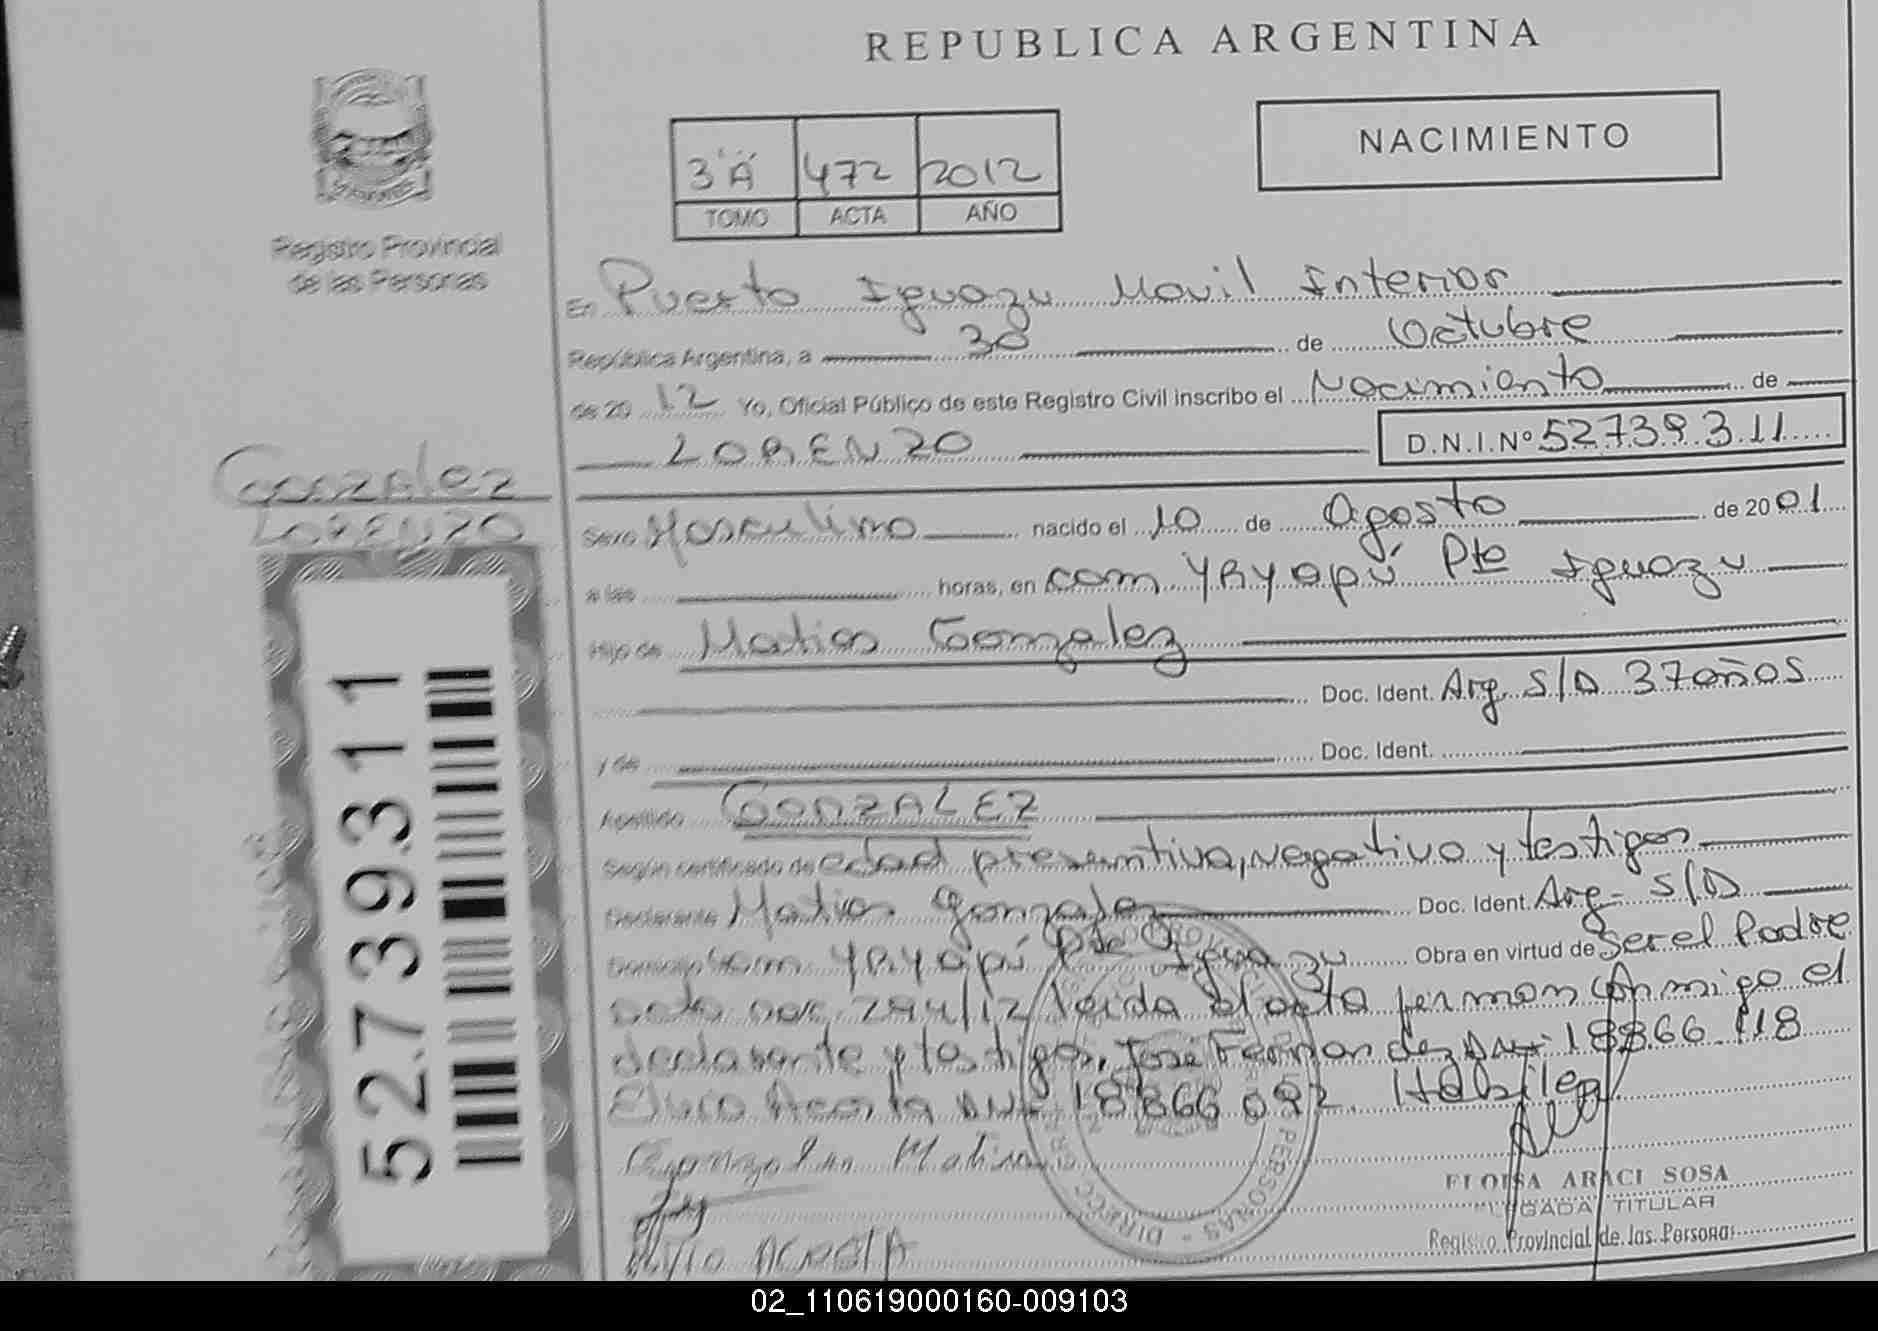 REPUBLICA ARGENTINA
NACIMIENTO
3 "A" 472 2012
TOMO ACTA AÑO
Registro Provincial
de las Personas
En Puerto Iguazu Movil Interior
República Argentina, a 30 de Octubre
de 20 12 Yo, Oficial Público de este Registro Civil inscribo el Nacimiento de
LORENZO D.N.I. Nº 52.739.311
Gonzalez
LORENZO
Sexo Masculino nacido el 10 de Agosto de 2001
a las horas, en com YRYapú Pto Iguazu
Hijo de Matias Gonzalez
Doc. Ident. Arg. S/D 37 años
y de Doc. Ident.
Apellido GONZALEZ
Según certificado de edad presuntiva, negativo y testigos
Declarante Matias Gonzalez Doc. Ident. Arg- S/D
Domicilio com YRYapú Pto Iguazu Obra en virtud de Ser el Padre
294/12 leida el acta firman conmigo el
declarante y testigos, José Fernandez DNI 18866.118
Acosta DNI 18866092.
Gonzalez Matias
ELOISA ARACI SOSA
DELEGADA TITULAR
Registro Provincial de las Personas
PERSONAS - DIRECC
52.739.311
02_110619000160-009103